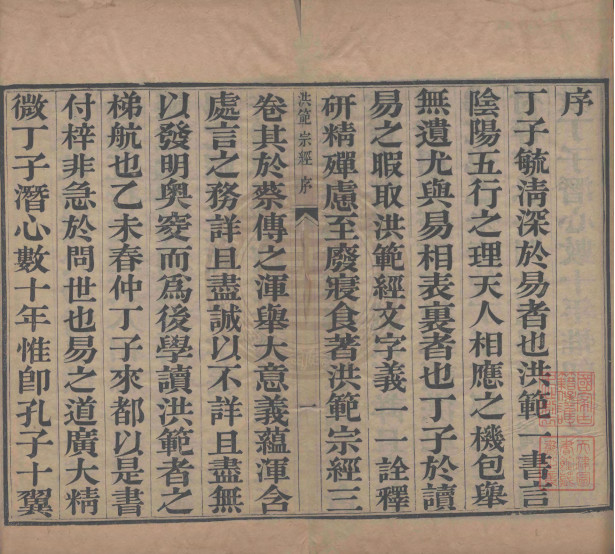 序
丁子毓淸深於易者也洪範一書言
陰陽五行之理天人相應之機包舉
無遺尤與易相表裏者也丁子於讀
易之暇取洪範經文字義一一詮釋
研精殫慮至廢寢食著洪範宗經三
洪範宗經 序 一
卷其於蔡傳之渾舉大意義蘊渾含
處言之務詳且盡誠以不詳且盡無
以發明奧窔而爲後學讀洪範者之
梯航也乙未春仲丁子來都以是書
付梓非急於問世也易之道廣大精
微丁子潛心數十年惟卽孔子十翼